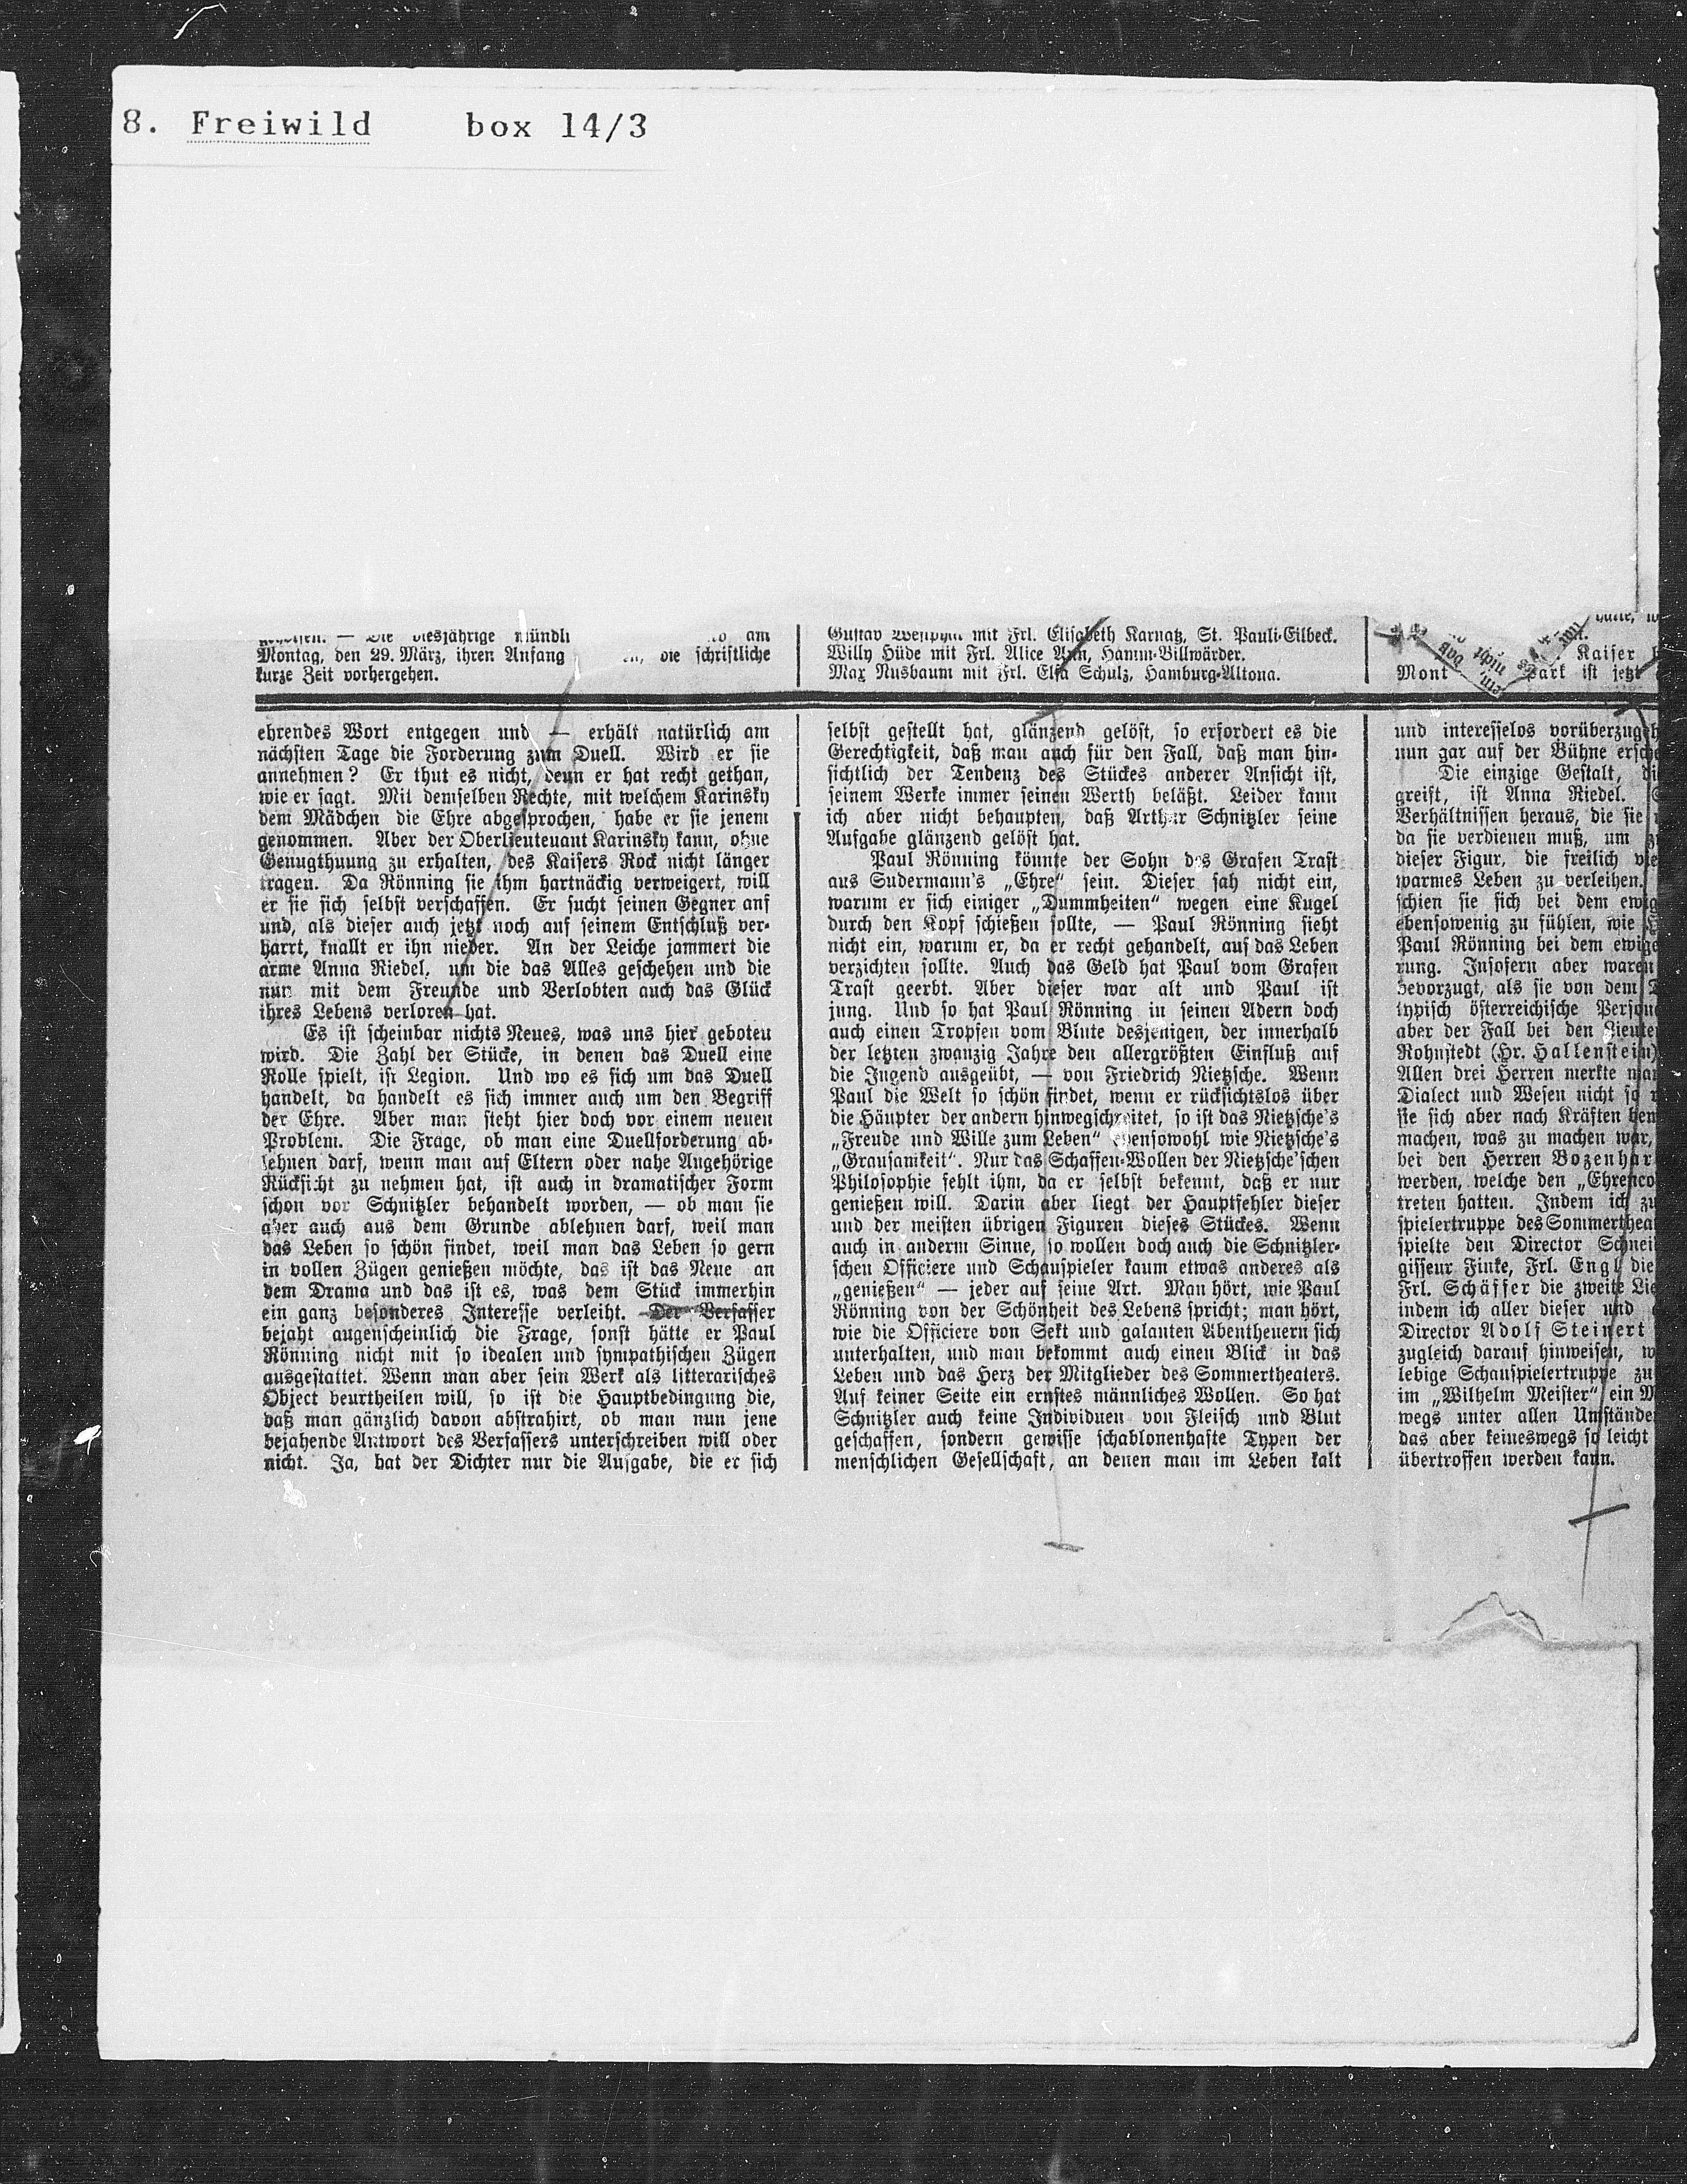 8. Freiwild box 14/3
Die diesjährige mündli am
Montag, den 29. März, ihren Anfang die schriftliche
kurze Zeit vorhergehen.
ehrendes Wort entgegen und — erhält natürlich am
nächsten Tage die Forderung zum Duell. Wird er sie
annehmen? Er thut es nicht, denn er hat recht gethan,
wie er sagt. Mit demselben Rechte, mit welchem Karinsky
dem Mädchen die Ehre abgesprochen, habe er sie jenem
genommen. Aber der Oberlieutenant Karinsky kann, ohne
Genugthuung zu erhalten, des Kaisers Rock nicht länger
tragen. Da Rönning sie ihm hartnäckig verweigert, will
er sie sich selbst verschaffen. Er sucht seinen Gegner auf
und, als dieser auch jetzt noch auf seinem Entschluß ver-
harrt, knallt er ihn nieder. An der Leiche jammert die
arme Anna Riedel, um die das Alles geschehen und die
nun mit dem Freunde und Verlobten auch das Glück
ihres Lebens verloren hat.
Es ist scheinbar nichts Neues, was uns hier geboten
wird. Die Zahl der Stücke, in denen das Duell eine
Rolle spielt, ist Legion. Und wo es sich um das Duell
handelt, da handelt es sich immer auch um den Begriff
der Ehre. Aber man steht hier doch vor einem neuen
Problem. Die Frage, ob man eine Duellforderung ab-
lehnen darf, wenn man auf Eltern oder nahe Angehörige
Rücksicht zu nehmen hat, ist auch in dramatischer Form
schon vor Schnitzler behandelt worden, — ob man sie
aber auch aus dem Grunde ablehnen darf, weil man
das Leben so schön findet, weil man das Leben so gern
in vollen Zügen genießen möchte, das ist das Neue an
dem Drama und das ist es, was dem Stück immerhin
ein ganz besonderes Interesse verleiht. Der Verfasser
bejaht augenscheinlich die Frage, sonst hätte er Paul
Rönning nicht mit so idealen und sympathischen Zügen
ausgestattet. Wenn man aber sein Werk als litterarisches
Object beurtheilen will, so ist die Hauptbedingung die,
daß man gänzlich davon abstrahirt, ob man nun jene
bejahende Antwort des Verfassers unterschreiben will oder
nicht. Ja, hat der Dichter nur die Aufgabe, die er sich
Gustav Westphal mit Frl. Elisabeth Karnatz, St. Pauli-Eilbeck.
Willy Hüde mit Frl. Alice Hamm-Billwärder.
Max Nusbaum mit Frl. Elsa Schulz, Hamburg-Altona.
selbst gestellt hat, glänzend gelöst, so erfordert es die
Gerechtigkeit, daß man auch für den Fall, daß man hin-
sichtlich der Tendenz des Stückes anderer Ansicht ist,
seinem Werke immer seinen Werth beläßt. Leider kann
ich aber nicht behaupten, daß Arthur Schnitzler seine
Aufgabe glänzend gelöst hat.
Paul Rönning könnte der Sohn des Grafen Trast
aus Sudermann's „Ehre“ sein. Dieser sah nicht ein,
warum er sich einiger „Dummheiten“ wegen eine Kugel
durch den Kopf schießen sollte, — Paul Rönning sieht
nicht ein, warum er, da er recht gehandelt, auf das Leben
verzichten sollte. Auch das Geld hat Paul vom Grafen
Trast geerbt. Aber dieser war alt und Paul ist
jung. Und so hat Paul Rönning in seinen Adern doch
auch einen Tropfen vom Blute desjenigen, der innerhalb
der letzten zwanzig Jahre den allergrößten Einfluß auf
die Jugend ausgeübt, — von Friedrich Nietzsche. Wenn
Paul die Welt so schön findet, wenn er rücksichtslos über
die Häupter der andern hinwegschreitet, so ist das Nietzsche's
„Freude und Wille zum Leben“ ebensowohl wie Nietzsche's
„Grausamkeit“. Nur das Schaffen-Wollen der Nietzsche'schen
Philosophie fehlt ihm, da er selbst bekennt, daß er nur
genießen will. Darin aber liegt der Hauptfehler dieser
und der meisten übrigen Figuren dieses Stückes. Wenn
auch in anderm Sinne, so wollen doch auch die Schnitzler-
schen Officiere und Schauspieler kaum etwas anderes als
„genießen“ — jeder auf seine Art. Man hört, wie Paul
Rönning von der Schönheit des Lebens spricht; man hört,
wie die Officiere von Sekt und galanten Abentheuern sich
unterhalten, und man bekommt auch einen Blick in das
Leben und das Herz der Mitglieder des Sommertheaters.
Auf keiner Seite ein ernstes männliches Wollen. So hat
Schnitzler auch keine Individuen von Fleisch und Blut
geschaffen, sondern gewisse schablonenhafte Typen der
menschlichen Gesellschaft, an denen man im Leben kalt
Kaiser
Mont park ist jetzt
und interesselos vorüberzugeh
nun gar auf der Bühne ersche
Die einzige Gestalt, di
greist, ist Anna Riedel.
Verhältnissen heraus, die sie
da sie verdienen muß, um
dieser Figur, die freilich vie
warmes Leben zu verleihen.
schien sie sich bei dem ewig
ebensowenig zu fühlen, wie
Paul Rönning bei dem ewige
rung. Insofern aber waren
bevorzugt, als sie von dem
typisch österreichische Person
aber der Fall bei den Lieute
Rohnstedt (Hr. Hallenstein)
Allen drei Herren merkte man
Dialect und Wesen nicht so
sie sich aber nach Kräften bem
machen, was zu machen war,
bei den Herren Bozenhar
werden, welche den „Ehrenco
treten hatten. Indem ich zu
spielertruppe des Sommerthea
spielte den Director Schnei
gisseur Finke, Frl. Engl die
Frl. Schäffer die zweite Lie
indem ich aller dieser und
Director Adolf Steinert
zugleich darauf hinweisen, w
lebige Schauspielertruppe zu
im „Wilhelm Meister“ ein M
wegs unter allen Umstände
das aber keineswegs so leicht
übertroffen werden kann.